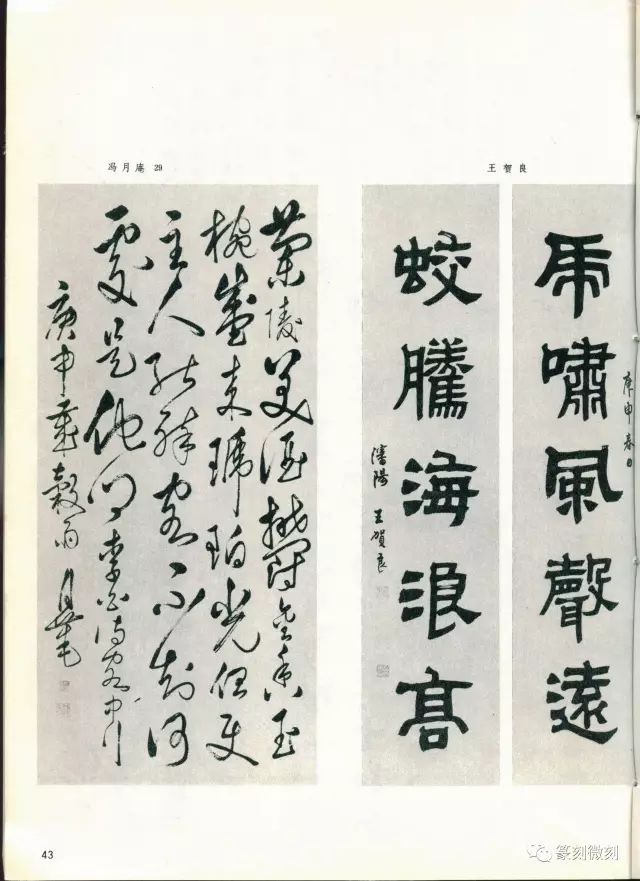 冯月庵 29
王贺良
虎嘯風聲遠
庚申春日
蛟騰海浪高
瀋陽 王賀良
蘭陵美酒鬱金香玉
椀盛来琥珀光但使
主人能醉客不知何
處是他鄉 李白詩客中行
庚申歲穀雨 月庵
43
篆刻微刻